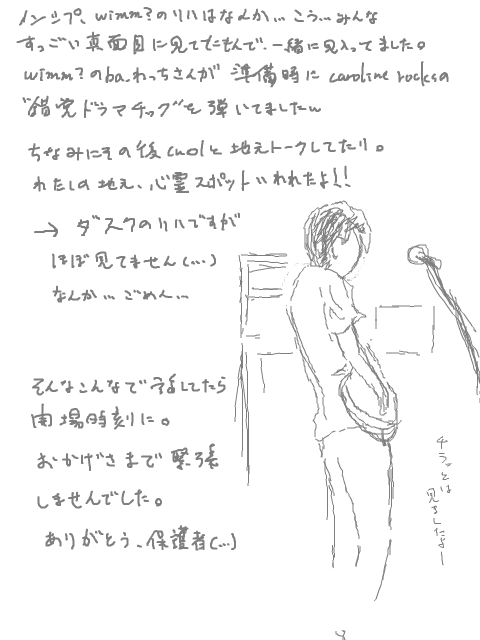 メンシプ、wimm?のリハはなんか…こう…みんな
すっごい真面目に見てたもんで、一緒に見入ってました。
wimm?のba.わっちさんが準備時にcaroline rocksの
"錯覚ドラマチック"を弾いてましたw
ちなみにその後cuolと地元トークしてたり。
わたしの地元、心霊スポットいわれたよ!!
→ダスクのリハですが
ほぼ見てません(…)
なんか…ごめん…
そんなこんなで話してたら
開場時刻に。
おかげさまで緊張
しませんでした。
ありがとう、保護者(…)
チラっとは
見ましたよー